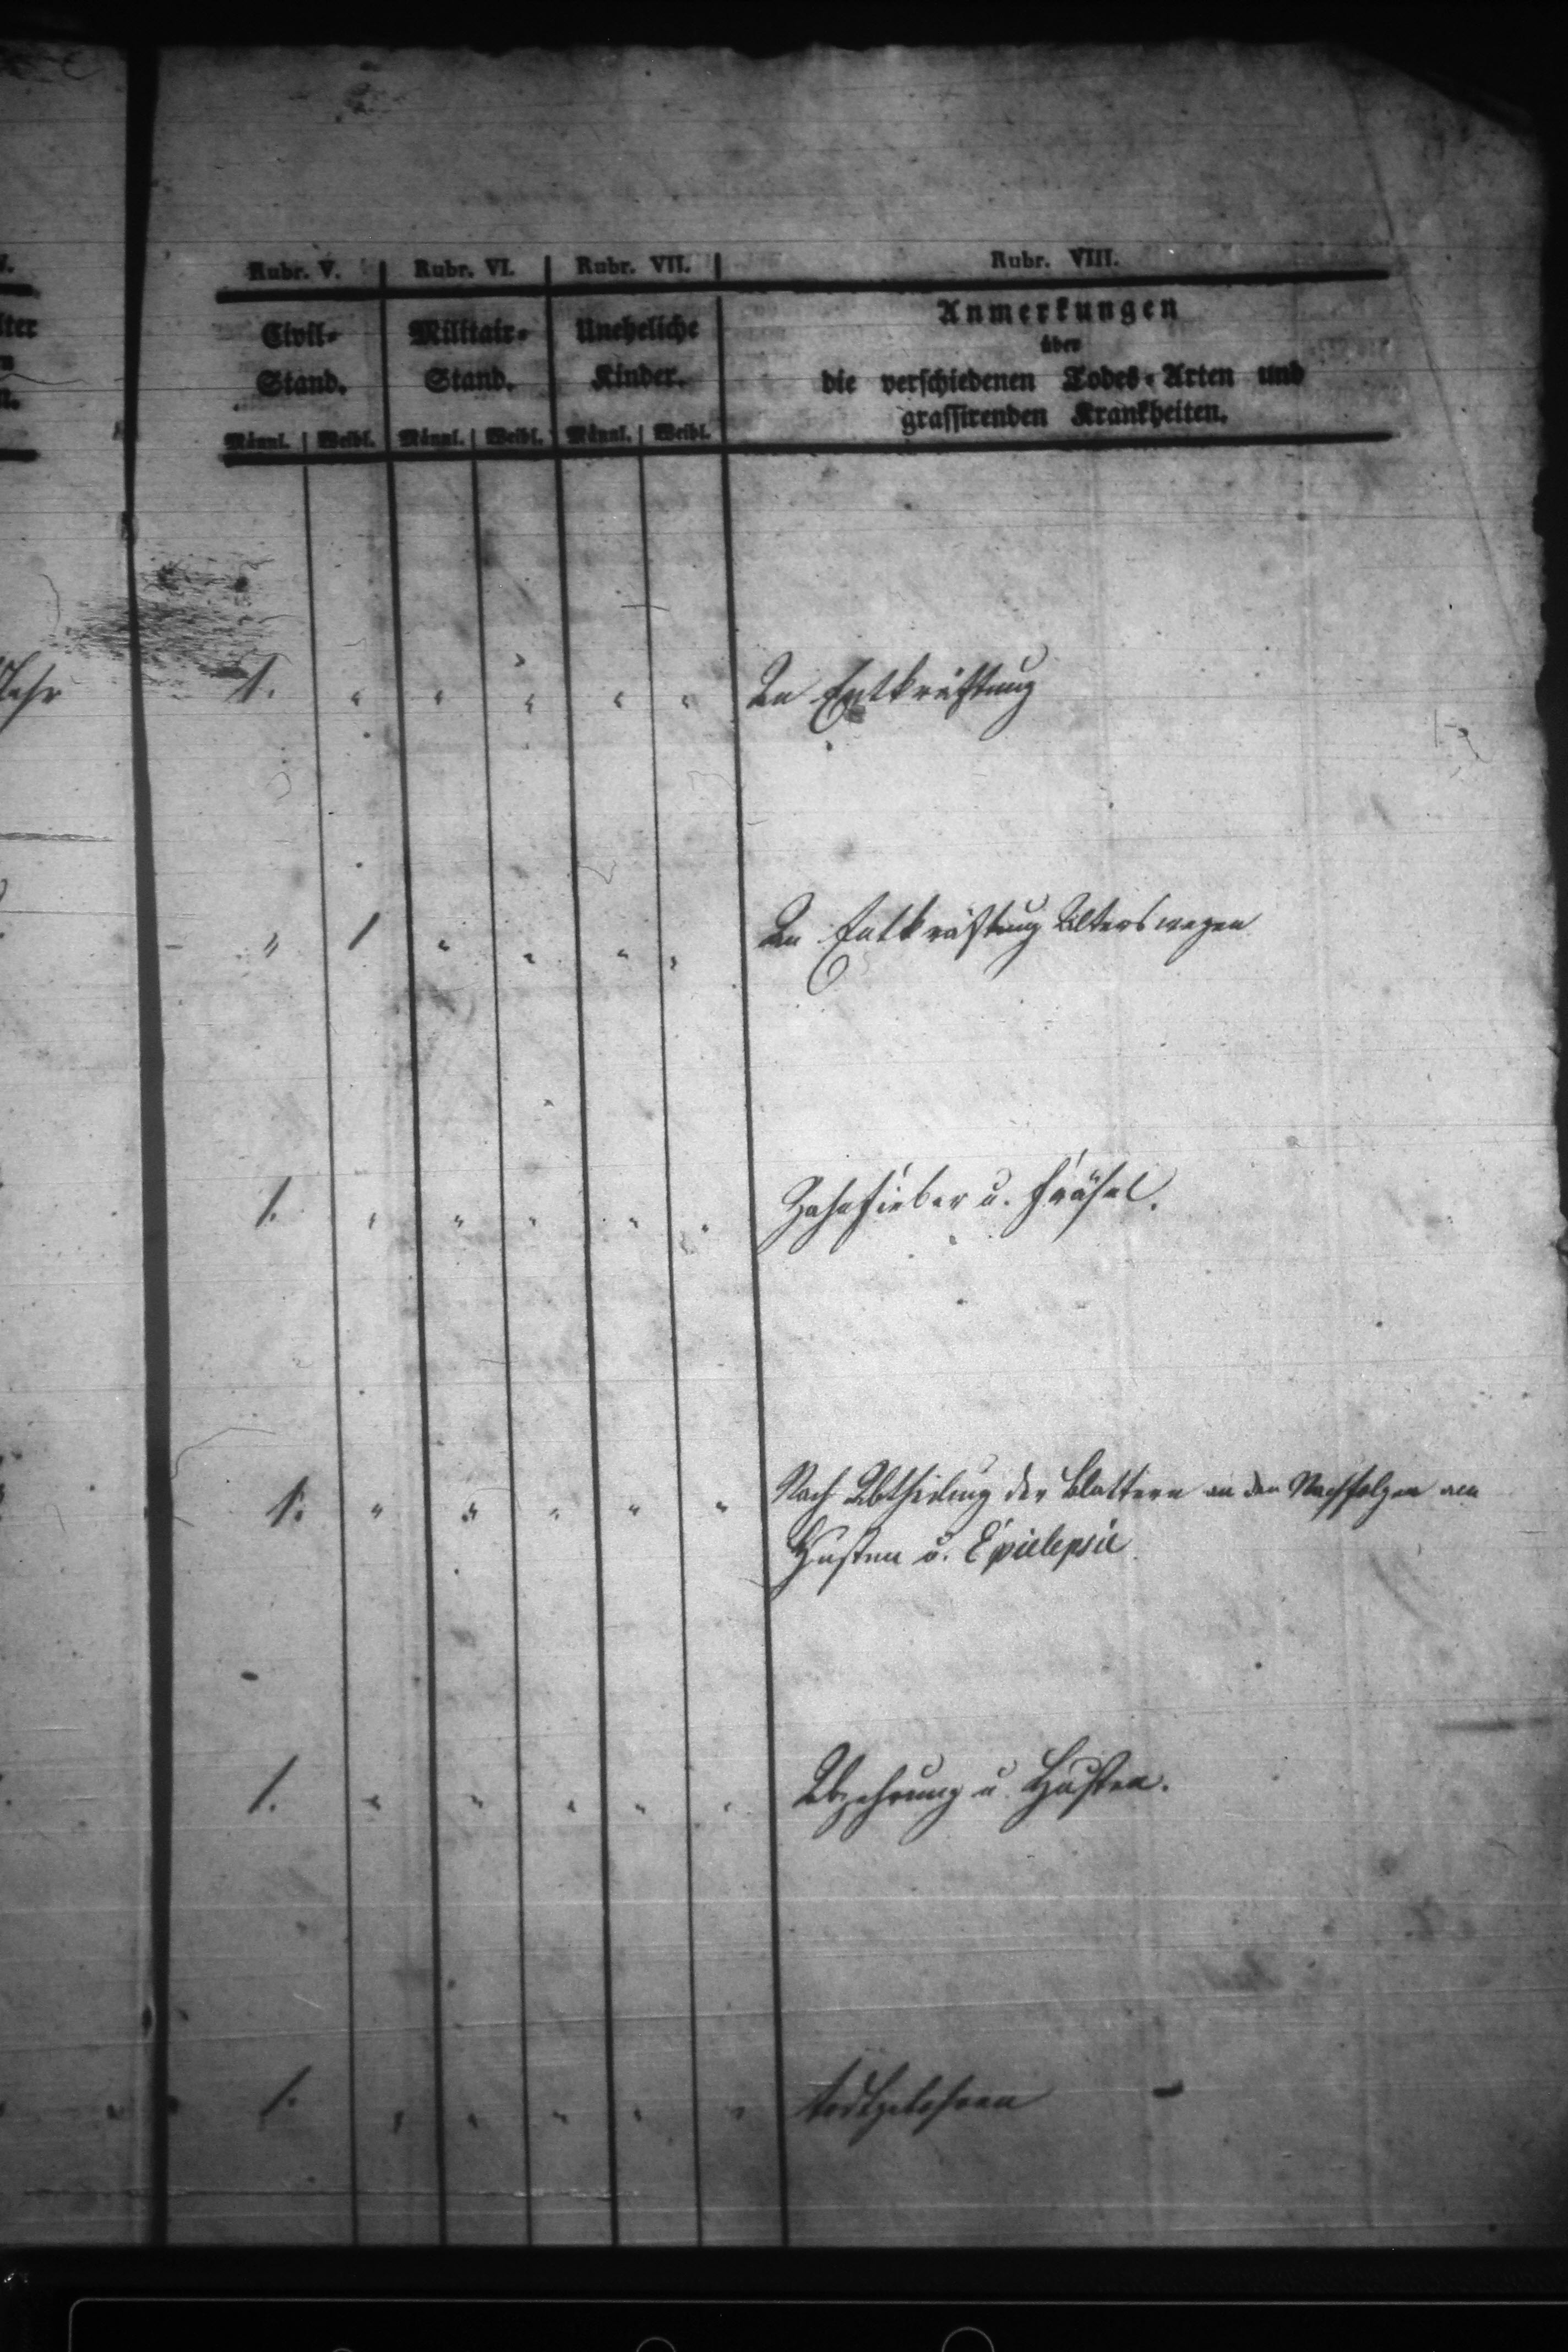 Rubr. V. Rubr. VI. Rubr. VII. Rubr. VIII.
Civil- Militair- Uneheliche Anmerkungen
über
Stand. Stand. Kinder. die verschiedenen Todes-Arten und
grassirenden Krankheiten.
Männl. Weibl. Männl. Weibl. Männl. Weibl.
Jahr 1. " " " " " An Entkräftung
" 1 " " " " An Entkräftung Alters wegen
1. " " " " " Zahnfieber u. Fräsel.
1. " " " " " Nach Abtheilung der Blattern an den Nachfolgen am
Husten u. Epielepsie
1. " " " " " Abzehrung u. Husten.
1. " " " " " todtgebohren